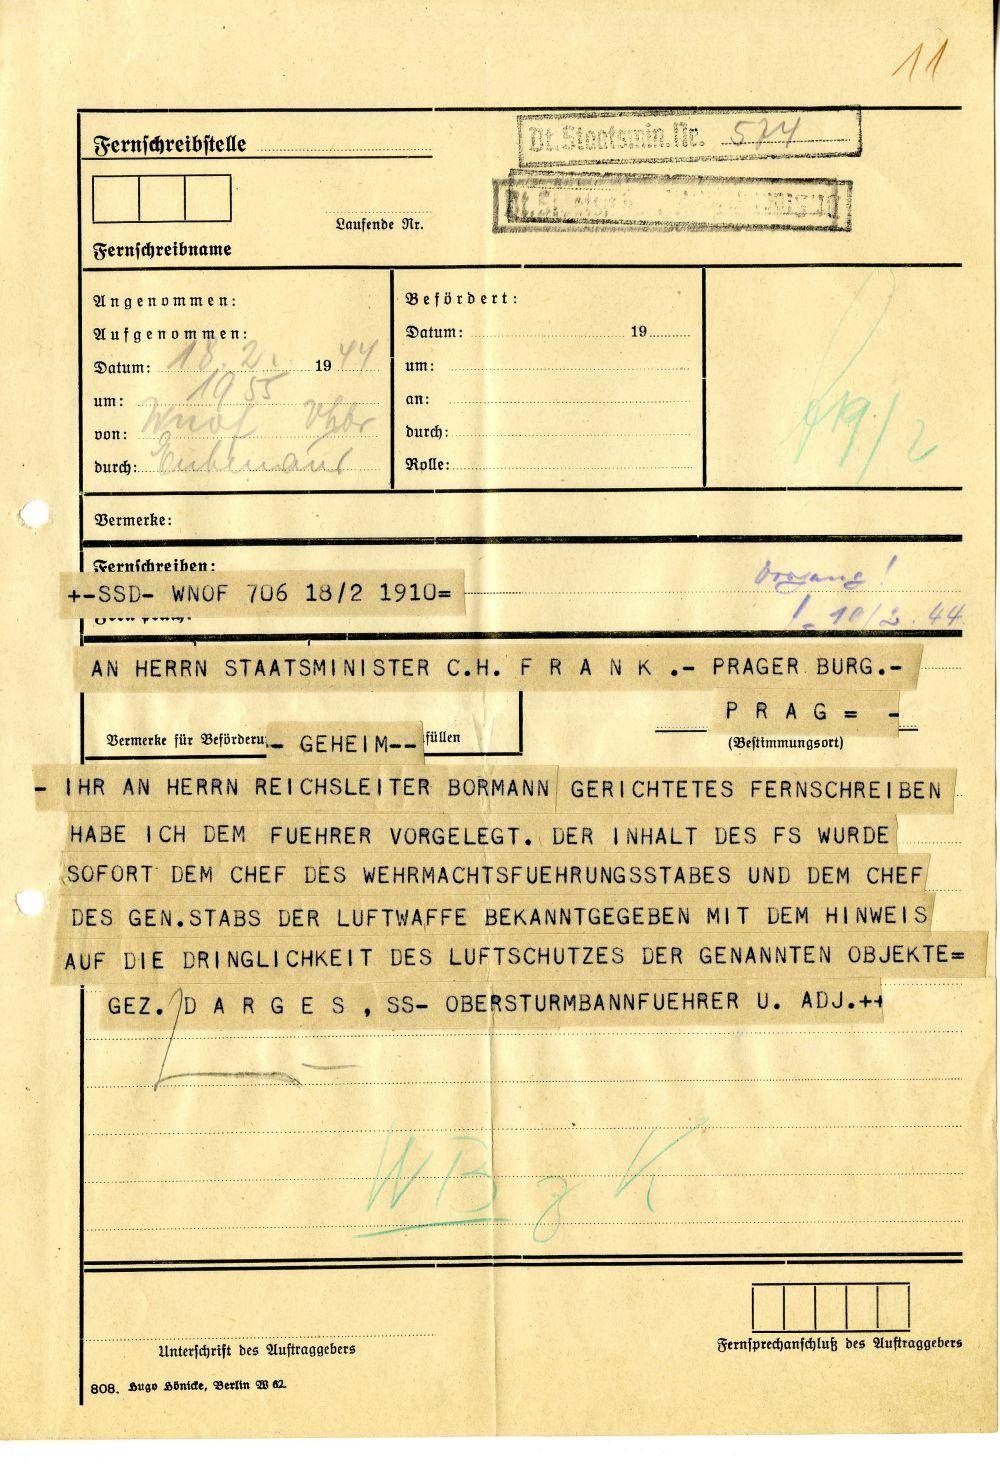 11
Fernschreibstelle
Dt. Staatsmin. Nr. 574
Laufende Nr.
Fernschreibname
Angenommen:
Aufgenommen:
Datum: 18.2. 19 44
um: 1955
von: Wnof
durch:
Befördert:
Datum: 19
um:
an:
durch:
Rolle:
19/2
Vermerke:
Fernschreiben:
+-SSD- WNOF 706 18/2 1910=
Vorgang!
44
AN HERRN STAATSMINISTER C.H. F R A N K .- PRAGER BURG.-
P R A G = -
Vermerke für Beförderu
füllen
(Bestimmungsort)
- GEHEIM--
- IHR AN HERRN REICHSLEITER BORMANN GERICHTETES FERNSCHREIBEN
HABE ICH DEM FUEHRER VORGELEGT. DER INHALT DES FS WURDE
SOFORT DEM CHEF DES WEHRMACHTSFUEHRUNGSSTABES UND DEM CHEF
DES GEN.STABS DER LUFTWAFFE BEKANNTGEGEBEN MIT DEM HINWEIS
AUF DIE DRINGLICHKEIT DES LUFTSCHUTZES DER GENANNTEN OBJEKTE=
GEZ. D A R G E S , SS- OBERSTURMBANNFUEHRER U. ADJ.++
WB z K
Unterschrift des Auftraggebers
Fernsprechanschluß des Auftraggebers
808. Hugo Hönicke, Berlin W 62.